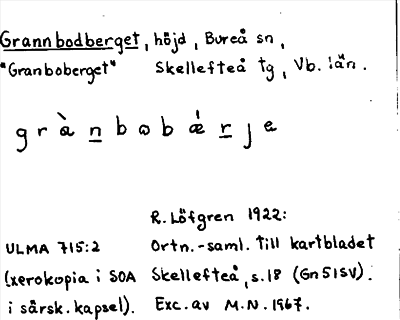 Grannbodberget, höjd, Bureå sn,
"Granboberget" Skellefteå tg, Vb. län.
g r à n b ω b ǽ r j e
R. Löfgren 1922:
ULMA 715:2 Ortn.-saml. till kartbladet
(xerokopia i SOA Skellefteå, s.18 (Gn51SV).
i särsk. kapsel). Exc. av M.N. 1967.